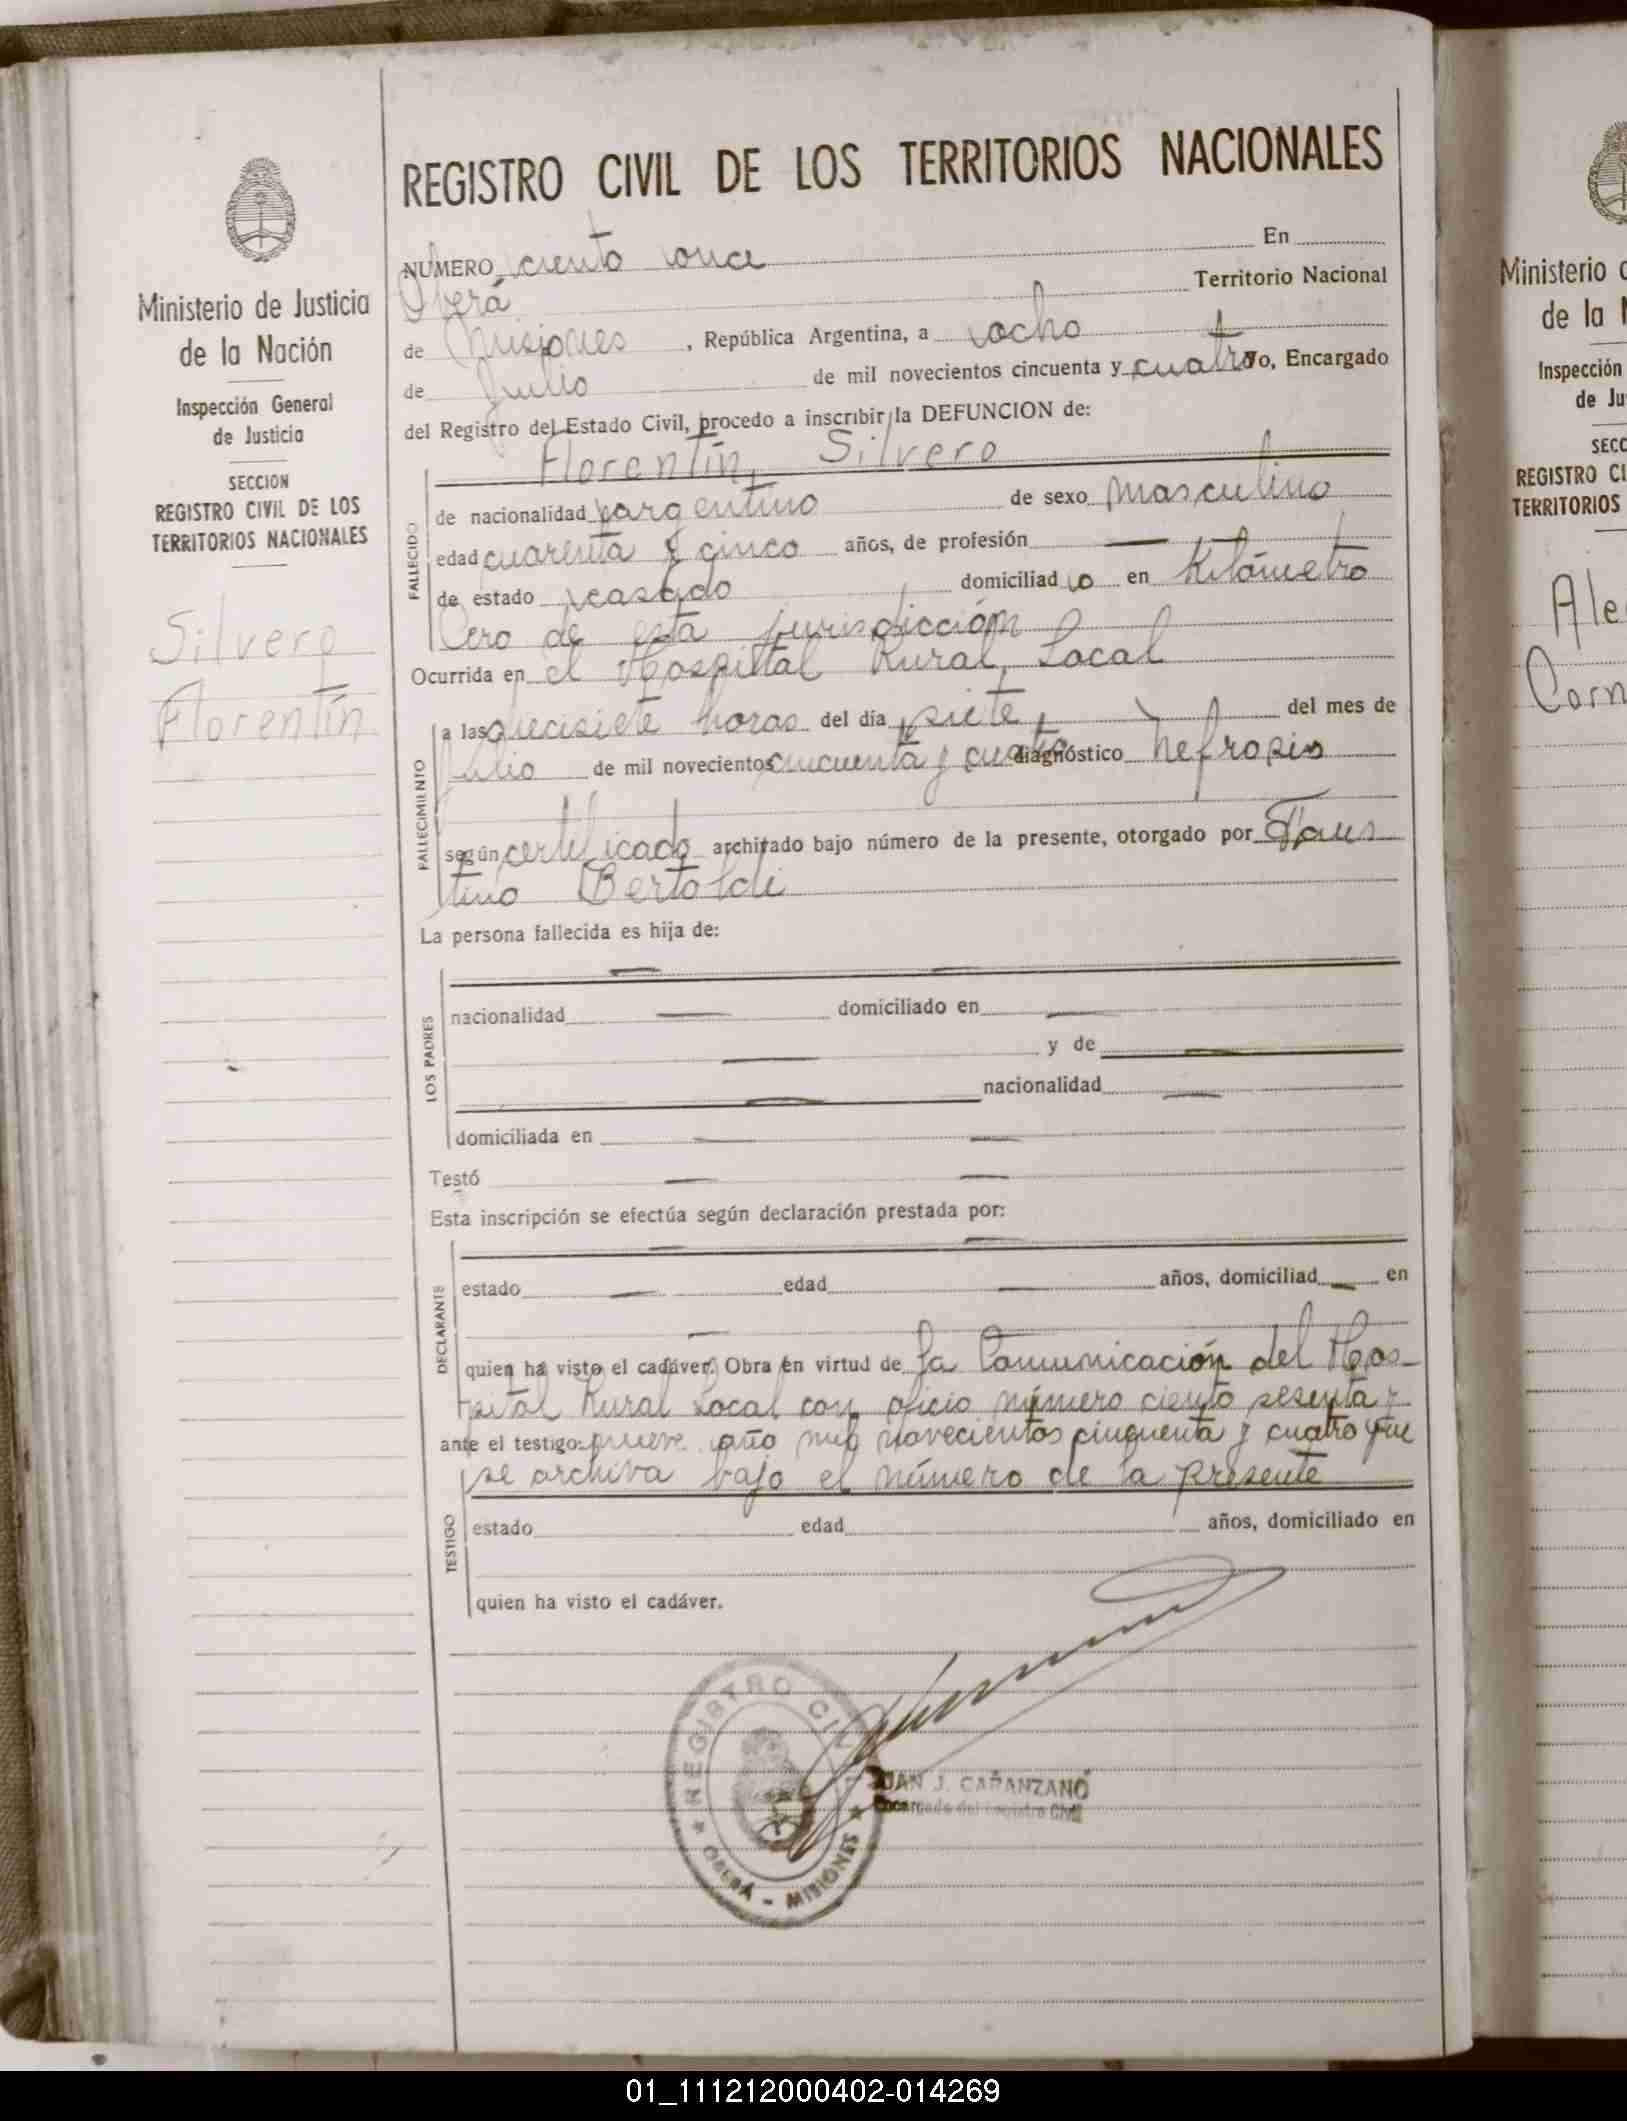 Ministerio de Justicia
de la Nación
Inspección General
de Justicia
SECCION
REGISTRO CIVIL DE LOS
TERRITORIOS NACIONALES
Silvero
Florentín
REGISTRO CIVIL DE LOS TERRITORIOS NACIONALES
NUMERO ciento once En
Oberá Territorio Nacional
de Misiones, República Argentina, a ocho
de Julio de mil novecientos cincuenta y cuatro Yo, Encargado
del Registro del Estado Civil, procedo a inscribir la DEFUNCION de:
Florentín, Silvero
FALLECIDO
de nacionalidad argentino de sexo masculino
edad cuarenta y cinco años, de profesión —
de estado casado domiciliado en Kilómetro
Cero de esta jurisdicción
Ocurrida en el Hospital Rural, Local
FALLECIMIENTO
a las diecisiete horas del día siete, del mes de
julio de mil novecientos cincuenta y cuatro diagnóstico Nefrosis
según certificado archivado bajo número de la presente, otorgado por Faus
tino Bertoldi
La persona fallecida es hija de:
LOS PADRES
— —
nacionalidad — domiciliado en —
— y de —
— nacionalidad —
domiciliada en — —
Testó — —
Esta inscripción se efectúa según declaración prestada por:
DECLARANTE
— —
estado — edad — años, domiciliad — en
—
quien ha visto el cadáver. Obra en virtud de la Comunicación del Hos-
pital Rural Local con oficio número ciento sesenta y
ante el testigo: nueve año mil novecientos cincuenta y cuatro que
se archiva bajo el número de la presente
TESTIGO
estado edad años, domiciliado en
quien ha visto el cadáver.
REGISTRO CIVIL
OBERÁ - MISIONES
JUAN J. CARANZANO
Encargado del Registro Civil
Ministerio
de la
Inspección
de Ju
SECC
REGISTRO CI
TERRITORIOS
Ale
Corn
01_111212000402-014269